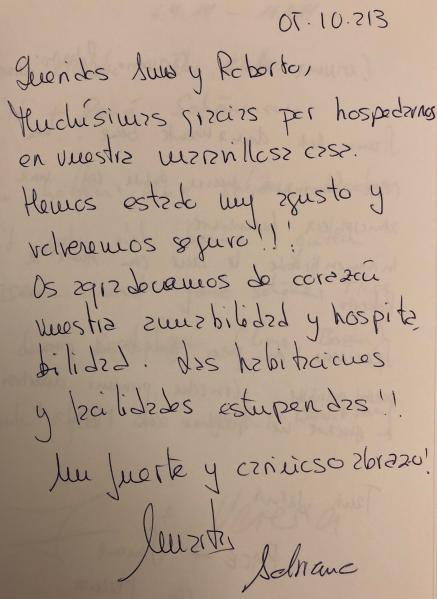 07.10.213
Queridos Suso y Roberto,
Muchísimas gracias por hospedarnos
en vuestra maravillosa casa.
Hemos estado muy agusto y
volveremos seguro!!!
Os agradecemos de corazón
vuestra amabilidad y hospita
bilidad. Las habitaciones
y facilidades estupendas!!
Un fuerte y cariñoso abrazo!
Adriana